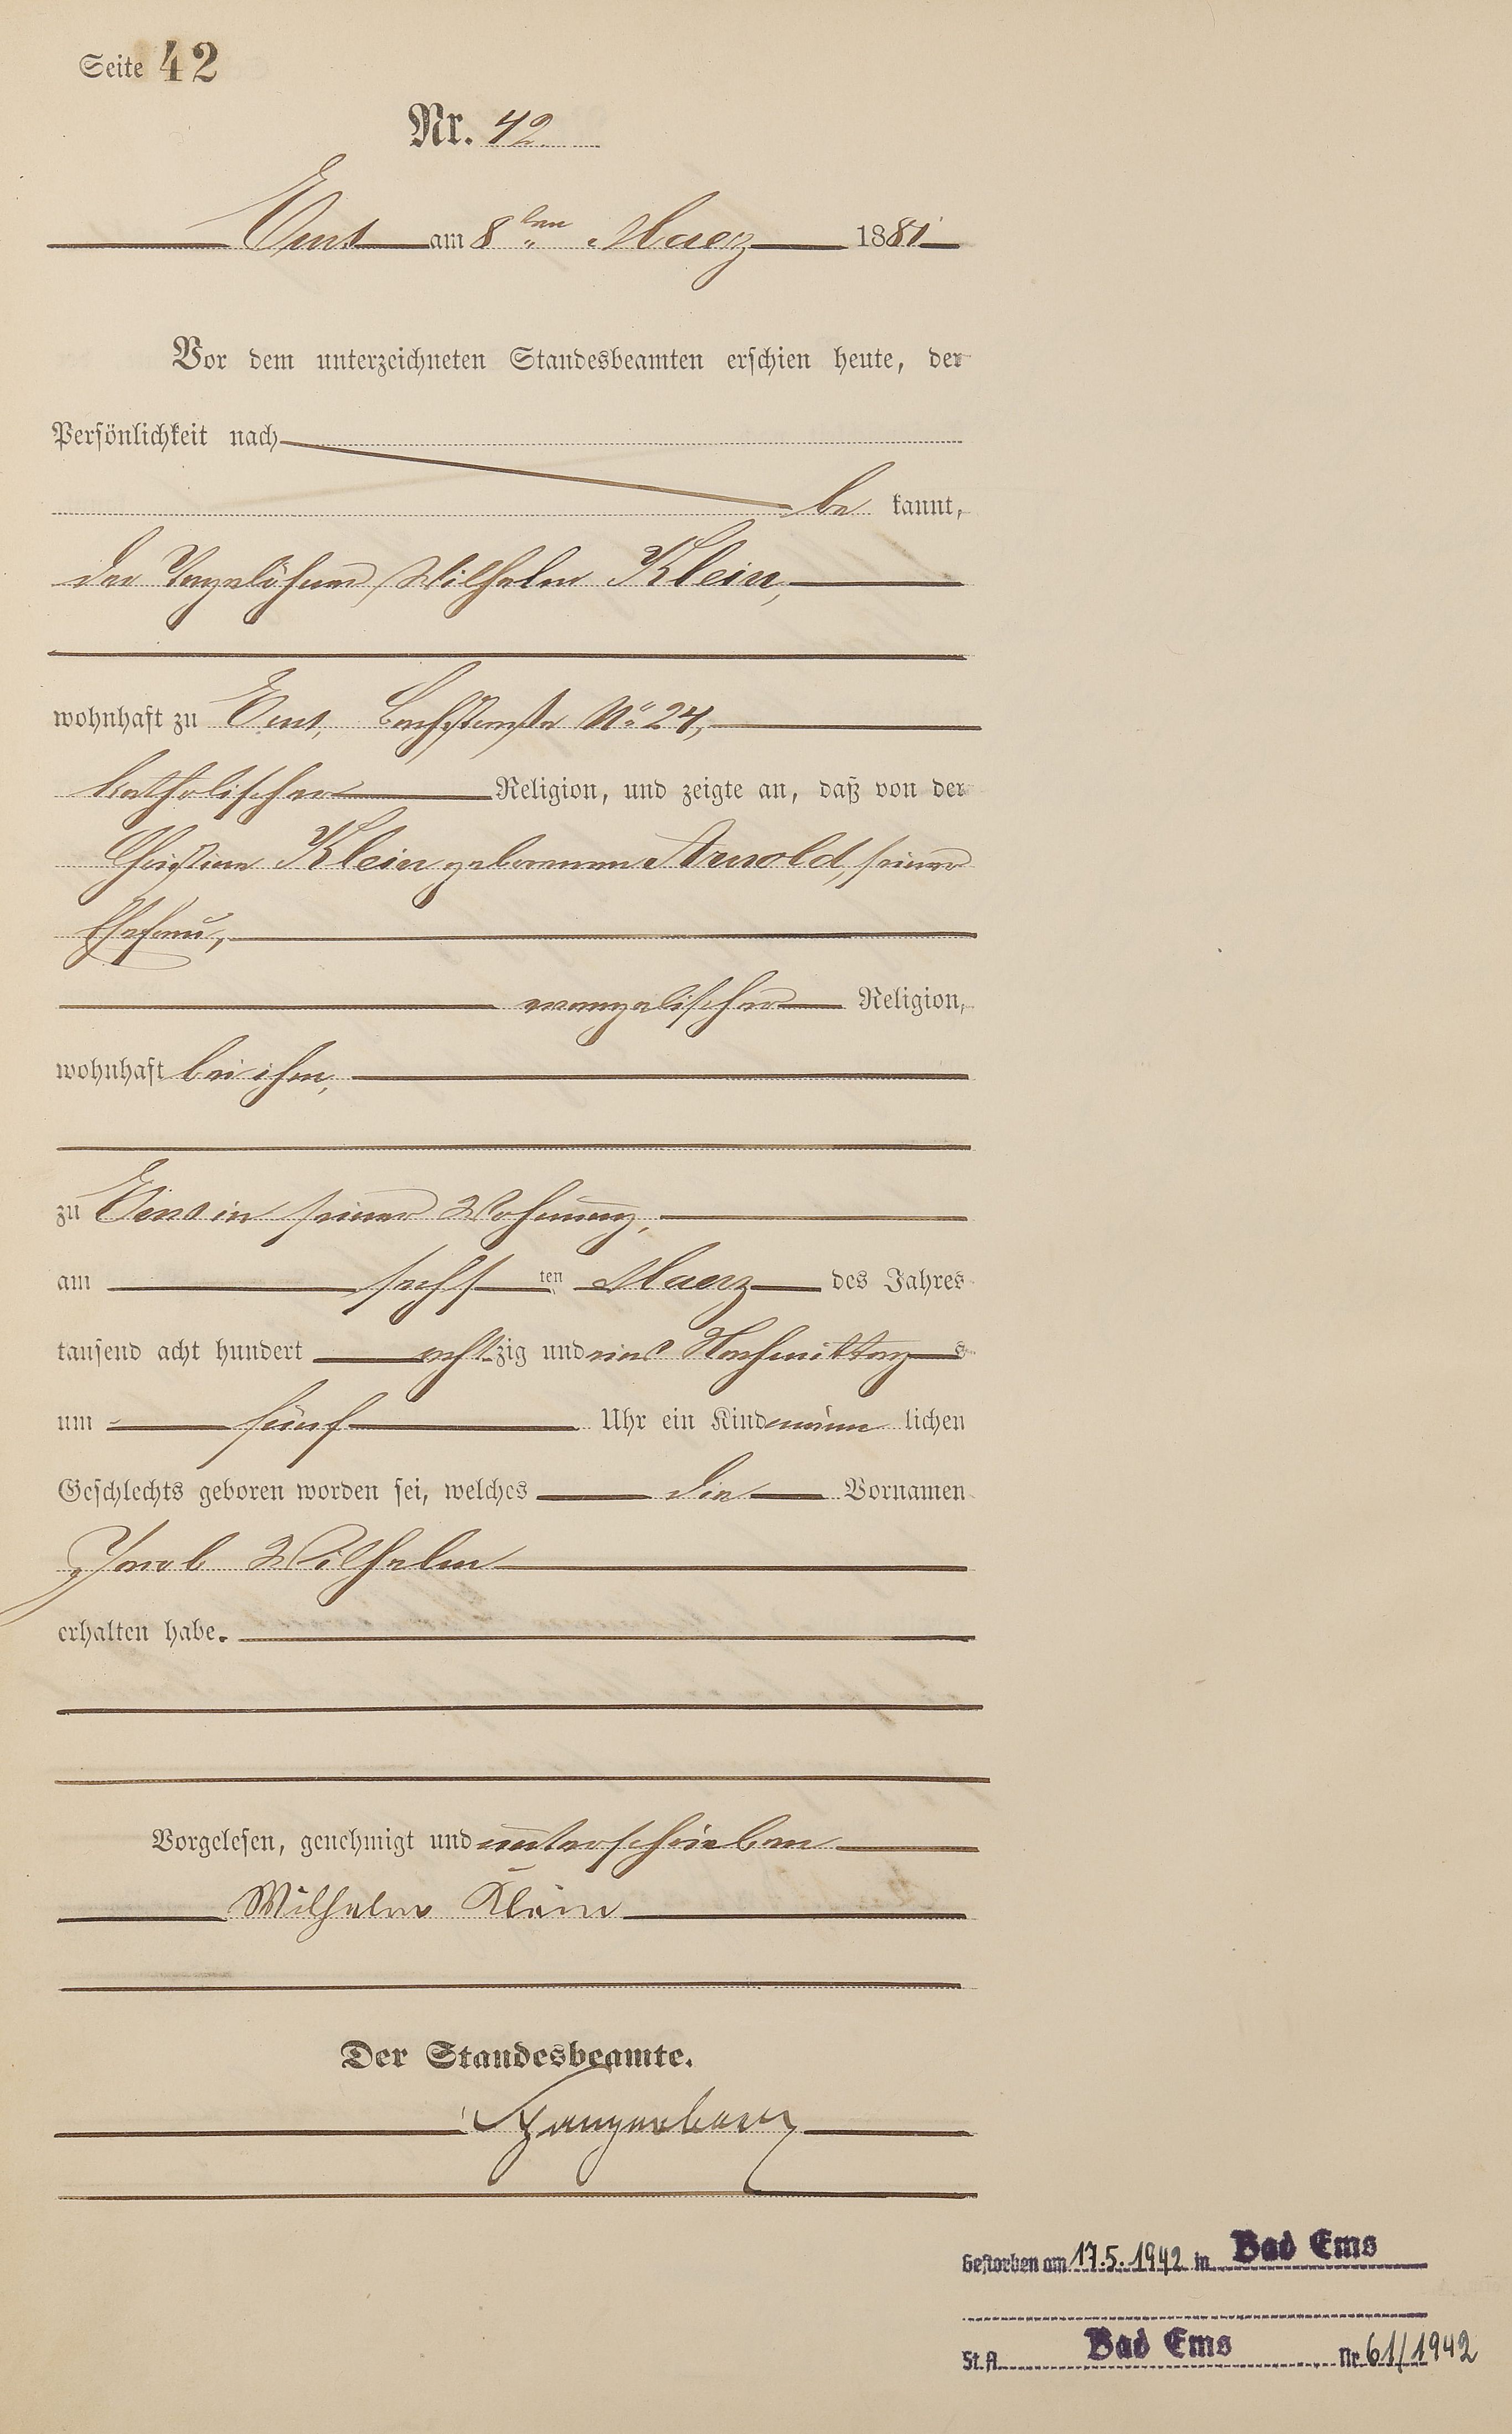 Seite 42
Nr. 42
Ems am 8ten Maerz 1881
Vor dem unterzeichneten Standesbeamten erschien heute, der
Persönlichkeit nach
be kannt,
der Tagelöhner Wilhelm Klein,
wohnhaft zu Ems, Bachstraße No 24,
katholischer Religion, und zeigte an, daß von der
Christine Klein geborenen Arnold, seiner
Ehefrau,
evangelischer Religion,
wohnhaft bei ihm,
zu Ems in seiner Wohnung,
am sechs ten Maerz des Jahres
tausend acht hundert acht zig und eins Nachmittag s
um fünf Uhr ein Kind männ lichen
Geschlechts geboren worden sei, welches die Vornamen
Jacob Wilhelm
erhalten habe.
Vorgelesen, genehmigt und unterschrieben
Wilhelm Klein
Der Standesbeamte.
Gestorben am 17.5.1942 in Bad Ems
St. A. Bad Ems Nr. 61/1942